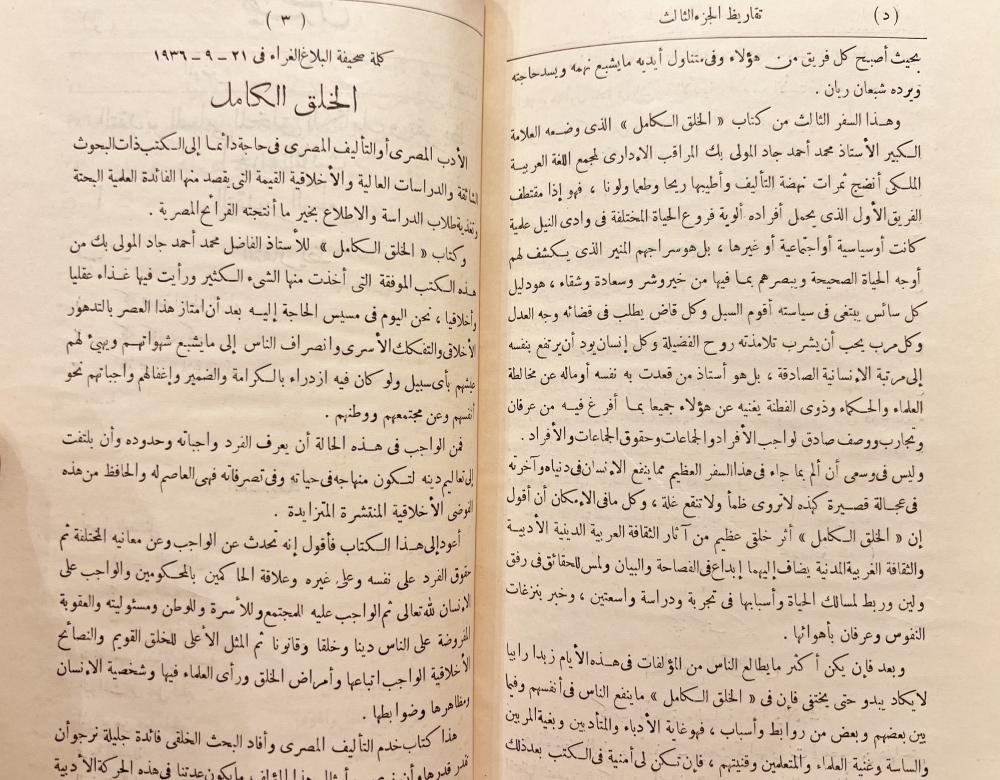 (د)
تقاريظ الجزء الثالث
بحيث أصبح كل فريق من هؤلاء وفى متناول أيديه ما يشبع نهمه ويسد حاجته
ويرده شبعان ريان .
وهذا السفر الثالث من كتاب « الخلق الكامل » الذى وضعه العلامة
الكبير الأستاذ محمد أحمد جاد المولى بك المراقب الادارى لمجمع اللغة العربية
الملكى أنضج ثمرات نهضة التأليف وأطيبها ريحا وطعما ولونا ، فهو إذا مقتطف
الفريق الأول الذى يحمل أفراده ألوية فروع الحياة المختلفة فى وادى النيل علمية
كانت أوسياسية أواجتماعية أو غيرها ، بل هو سراجهم المنير الذى يكشف لهم
أوجه الحياة الصحيحة ويبصرهم بما فيها من خير وشر وسعادة وشقاء ، هو دليل
كل سائس يبتغى فى سياسته أقوم السبل وكل قاض يطلب فى قضائه وجه العدل
وكل مرب يحب أن يشرب تلامذته روح الفضيلة وكل إنسان يود أن يرتفع بنفسه
إلى مرتبة الإنسانية الصادقة ، بل هو أستاذ من قعدت به نفسه أو ماله عن مخالطة
العلماء والحكماء وذوى الفطنة يغنيه عن هؤلاء جميعا بما أفرغ فيه من عرفان
وتجارب ووصف صادق لواجب الأفراد والجماعات وحقوق الجماعات والأفراد .
وليس فى وسعى أن ألم بما جاء فى هذا السفر العظيم مما ينفع الإنسان فى دنياه وآخرته
فى عجالة قصيرة كهذه لا تروى ظمأ ولا تنقع غلة ، وكل ما فى الإمكان أن أقول
إن « الخلق الكامل » أثر خلقى عظيم من آثار الثقافة العربية الدينية الأدبية
والثقافة الغربية المدنية يضاف إليهما إبداع فى الفصاحة والبيان ولمس للحقائق فى رفق
ولين وربط لمسالك الحياة وأسبابها فى تجربة ودراسة واسعتين ، وخبر بنزعات
النفوس وعرفان بأهوائها .
وبعد فإن يكن أكثر ما يطالع الناس من المؤلفات فى هذه الأيام زبدا رابيا
لا يكاد يبدو حتى يختفى فإن فى « الخلق الكامل » ما ينفع الناس فى أنفسهم وفيما
بين بعضهم وبعض من روابط وأسباب ، فهو غاية الأدباء والمتأدبين وبغية المربين
والساسة وغنية العلماء والمتعلمين وقنيتهم ، فإن تكن لى أمنية فى الكتب بعد ذلك
( ٣ )
كلمة صحيفة البلاغ الغراء فى ٢١ – ٩ – ١٩٣٦
الخلق الكامل
الأدب المصرى أو التأليف المصرى فى حاجة دائما إلى الكتب ذات البحوث
الشائقة والدراسات العالية والأخلاقية القيمة التى يقصد منها الفائدة العلمية البحتة
وتغذية طلاب الدراسة والاطلاع بخير ما أنتجته القرائح المصرية .
وكتاب « الخلق الكامل » للأستاذ الفاضل محمد أحمد جاد المولى بك من
هذه الكتب الموفقة التى أخذت منها الشىء الكثير ورأيت فيها غذاء عقليا
وأخلاقيا ، نحن اليوم فى مسيس الحاجة إليه بعد أن امتاز هذا العصر بالتدهور
الأخلاقى والتفكك الأسرى وانصراف الناس إلى ما يشبع شهواتهم ويهيئ لهم
عيشهم بأى سبيل ولو كان فيه ازدراء بالكرامة والضمير وإغفالهم واجباتهم نحو
أنفسهم وعن مجتمعهم ووطنهم .
فمن الواجب فى هذه الحالة أن يعرف الفرد واجباته وحدوده وأن يلتفت
إلى تعاليم دينه لتكون منهاجه فى حياته وفى تصرفاته فهى العاصم له والحافظ من هذه
الفوضى الأخلاقية المنتشرة المتزايدة .
أعود إلى هذا الكتاب فأقول إنه تحدث عن الواجب وعن معانيه المختلفة ثم
حقوق الفرد على نفسه وعلى غيره وعلاقة الحاكمين بالمحكومين والواجب على
الإنسان لله تعالى ثم الواجب عليه للمجتمع وللأسرة وللوطن ومسئوليته والعقوبة
المفروضة على الناس دينا وخلقا وقانونا ثم المثل الأعلى للخلق القويم والنصائح
الأخلاقية الواجب اتباعها وأمراض الخلق ورأى العلماء فيها وشخصية الإنسان
ومظاهرها وضوابطها .
هذا كتاب خدم التأليف المصرى وأفاد البحث الخلقى فائدة جليلة نرجو أن
تقدر قدرها وأن ما يكون عدتنا فى هذه الحركة الأدبية